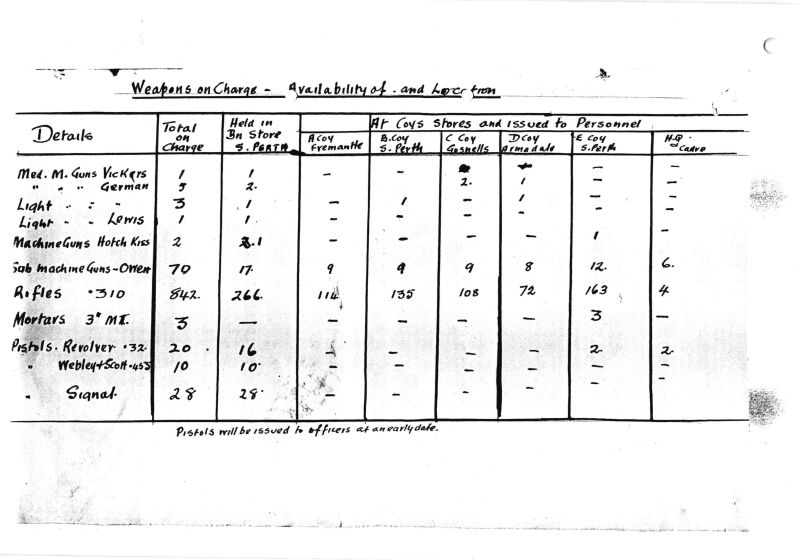 Weapons on Charge - Availability of . and Location
Details Total on Charge Held in Bn Store S. PERTH At Coys Stores and issued to Personnel
A Coy Fremantle B. Coy S. Perth C Coy Gosnells D Coy Armadale E Coy S. Perth H.Q. Cadre
Med. M. Guns Vickers 1 1 - - - - -
" " " German 5 2. 2. 1 - -
Light " " " 3 1 - 1 - 1 - -
Light - - Lewis 1 1 - - - - - -
Machine Guns Hotch Kiss 2 1 - - - - 1 -
Sub machine Guns - Owen 70 17. 9 9 9 8 12. 6.
Rifles .310 842. 266. 114 135 108 72 163 4
Mortars 3" 3 - - - - - 3 -
Pistols. Revolver .32 20 16 - - - - 2. 2
" Webley & Scott .455 10 10 - - - - - -
" Signal 28 28 - - - - - -
Pistols will be issued to officers at an early date.